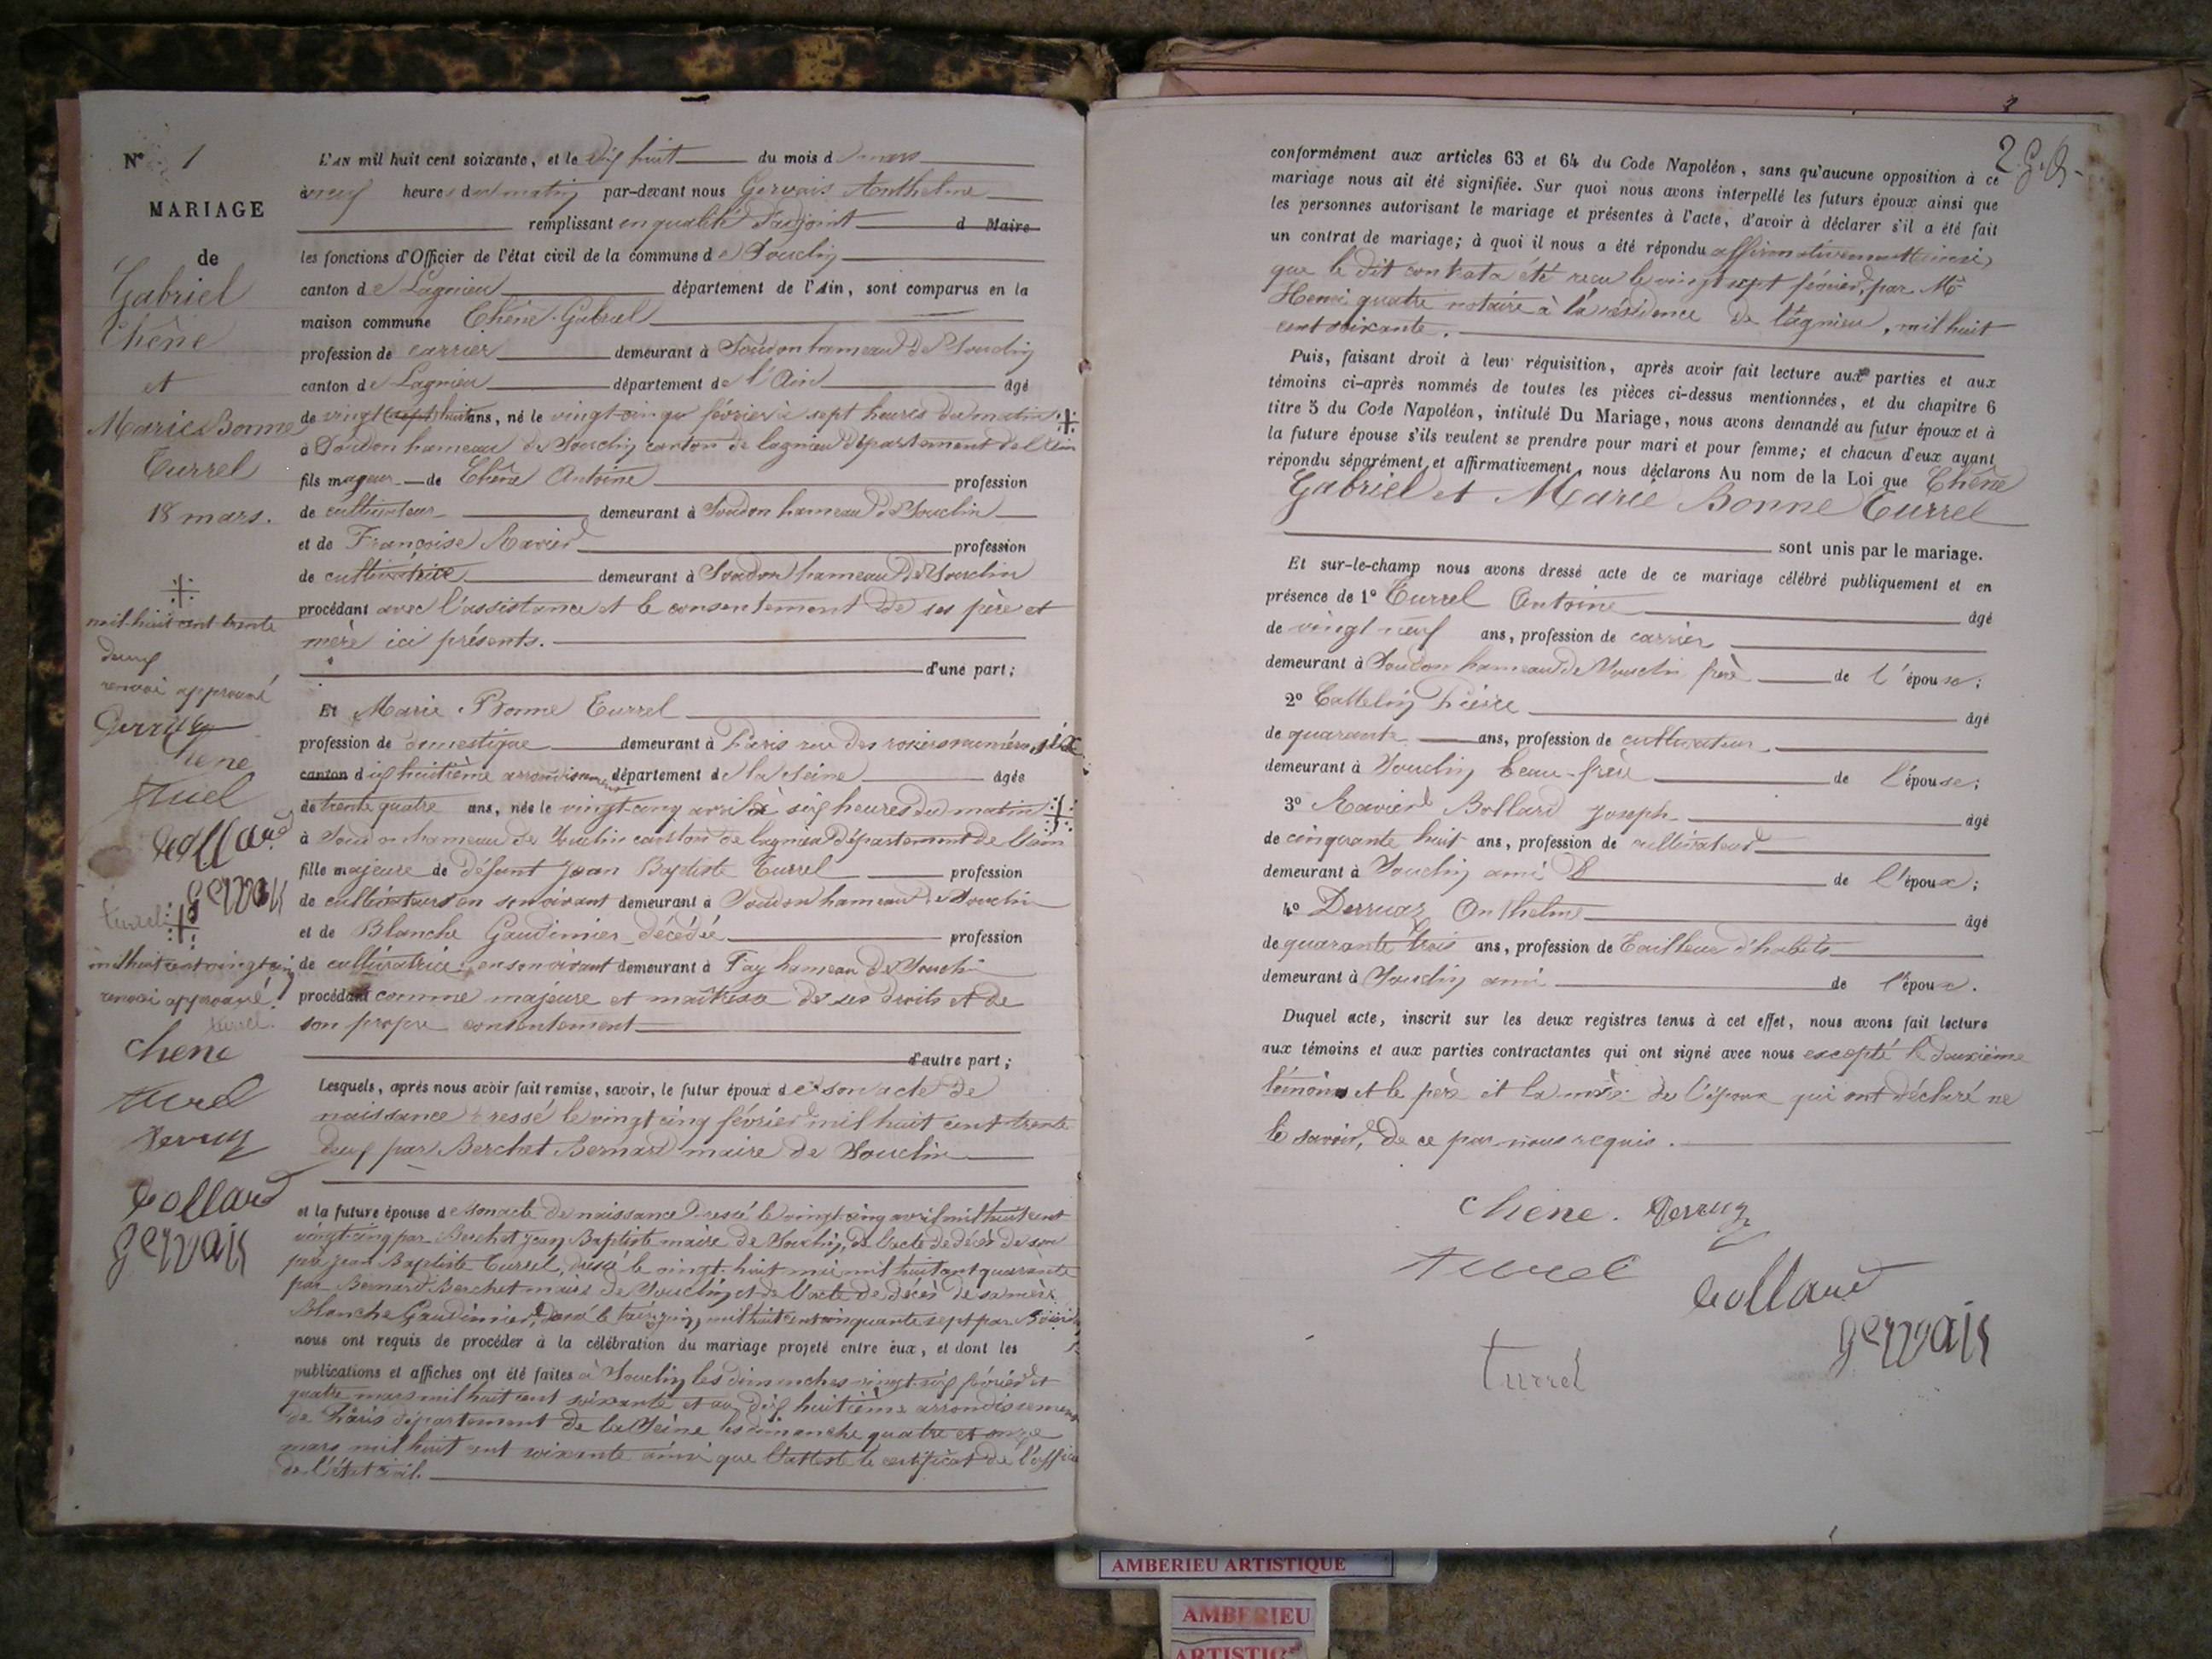 N° 1
MARIAGE
de
Gabriel
Chêne
et
Marie Bonne
Turrel
18 mars.
mil huit cent trente
deux
renvoi approuvé
Derruaz
Chene
turel
bollard
gervais
turrel
mil huit cent vingt cinq
renvoi approuvé
turrel
chene
turel
Derruaz
bollard
gervais
L'AN mil huit cent soixante, et le dix huit du mois de mars
à neuf heures du matin par-devant nous Gervais Anthelme
remplissant en qualité d'adjoint d Maire
les fonctions d'Officier de l'état civil de la commune de Souclin
canton de Lagnieu département de l'Ain, sont comparus en la
maison commune Chêne Gabriel
profession de carrier demeurant à Soudon hameau de Souclin
canton de Lagnieu département de l'Ain âgé
de vingt (sept) huit ans, né le vingt cinq février à sept heures du matin
à Soudon hameau de Souclin canton de lagnieu département de l'Ain
fils majeur de Chêne Antoine profession
de cultivateur demeurant à Soudon hameau de Souclin
et de Françoise Ravier profession
de cultivatrice demeurant à Soudon hameau de Souclin
procédant avec l'assistance et le consentement de ses père et
mère ici présents.
d'une part;
Et Marie Bonne Turrel
profession de domestique demeurant à Paris rue des rosiers numéro six
canton dix huitième arrondissement département de la Seine âgée
de trente quatre ans, née le vingt cinq avril à six heures du matin
à Soudon hameau de Souclin canton de lagnieu département de l'Ain
fille majeure de défunt Jean Baptiste Turrel profession
de cultivateur en son vivant demeurant à Soudon hameau de Souclin
et de Blanche Gaudinier décédée profession
de cultivatrice en son vivant demeurant à Fay hameau de Souclin
procédant comme majeure et maîtresse de ses droits et de
son propre consentement
d'autre part;
Lesquels, après nous avoir fait remise, savoir, le futur époux de son acte de
naissance dressé le vingt cinq février mil huit cent trente
deux par Berchet Bernard maire de Souclin
et la future épouse de son acte de naissance dressé le vingt cinq avril mil huit cent
vingt cinq par Berchet Jean Baptiste maire de Souclin, de l'acte de décès de son
père Jean Baptiste Turrel, dressé le vingt huit mai mil huit cent quarante
par Bernard Berchet maire de Souclin et de l'acte de décès de sa mère
Blanche Gaudinier, dressé le juin mil huit cent cinquante sept par
nous ont requis de procéder à la célébration du mariage projeté entre eux, et dont les
publications et affiches ont été faites à Souclin les dimanches vingt six février et
quatre mars mil huit cent soixante et au dix huitième arrondissement
de Paris département de la Seine les dimanche quatre et onze
mars mil huit cent soixante ainsi que l'atteste le certificat de l'officier
de l'état civil.
2
conformément aux articles 63 et 64 du Code Napoléon, sans qu'aucune opposition à ce
mariage nous ait été signifiée. Sur quoi nous avons interpellé les futurs époux ainsi que
les personnes autorisant le mariage et présentes à l'acte, d'avoir à déclarer s'il a été fait
un contrat de mariage; à quoi il nous a été répondu affirmativement ainsi
que le dit contrat a été reçu le vingt sept février, par Me
Henri quatre notaire à la résidence de lagnieu, mil huit
cent soixante.
Puis, faisant droit à leur réquisition, après avoir fait lecture aux parties et aux
témoins ci-après nommés de toutes les pièces ci-dessus mentionnées, et du chapitre 6
titre 5 du Code Napoléon, intitulé Du Mariage, nous avons demandé au futur époux et à
la future épouse s'ils veulent se prendre pour mari et pour femme; et chacun d'eux ayant
répondu séparément et affirmativement, nous déclarons Au nom de la Loi que Chêne
Gabriel et Marie Bonne Turrel
sont unis par le mariage.
Et sur-le-champ nous avons dressé acte de ce mariage célébré publiquement et en
présence de 1° Turrel Antoine âgé
de vingt neuf ans, profession de carrier
demeurant à Soudon hameau de Souclin frère de l'épouse;
2° Cattelin Pierre âgé
de quarante ans, profession de cultivateur
demeurant à Souclin beau-frère de l'épouse;
3° Ravier Bollard Joseph âgé
de cinquante huit ans, profession de cultivateur
demeurant à Souclin ami de l'époux;
4° Derruaz Anthelme âgé
de quarante trois ans, profession de tailleur d'habits
demeurant à Souclin ami de l'époux.
Duquel acte, inscrit sur les deux registres tenus à cet effet, nous avons fait lecture
aux témoins et aux parties contractantes qui ont signé avec nous excepté le deuxième
témoin et le père et la mère de l'époux qui ont déclaré ne
le savoir, de ce par nous requis.
chene. Derruaz
turel
bollard
gervais
turrel
AMBERIEU ARTISTIQUE
AMBERIEU
ARTISTIQUE